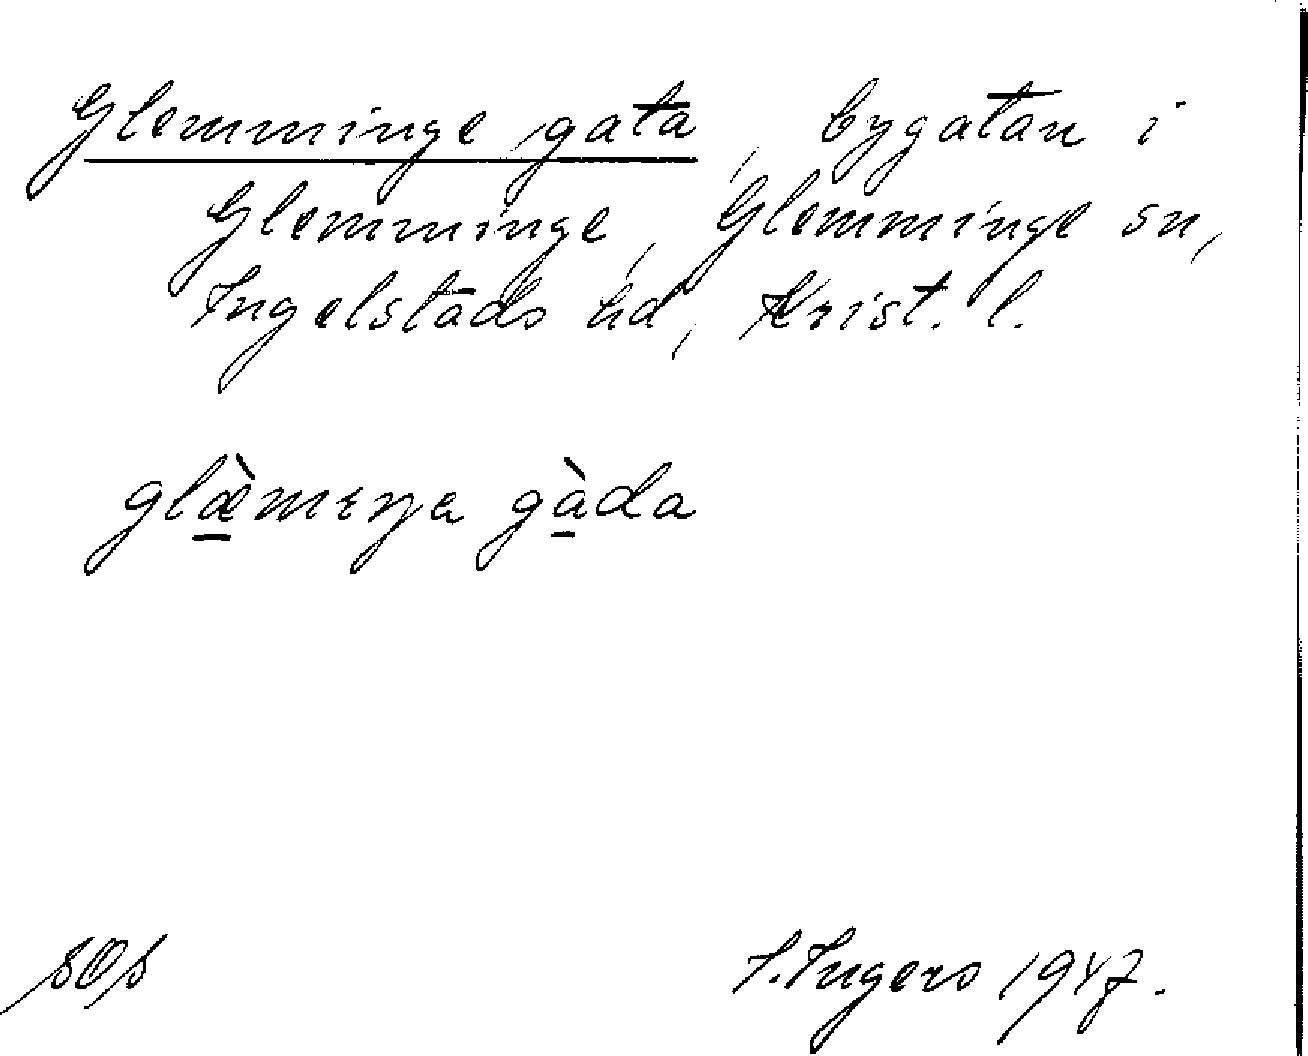 Glemminge gata, bygatan i
Glemminge, Glemminge sn,
Ingelstads hd, Krist. l.
glæ̀mɪŋa gàda
I. Ingers 1947.